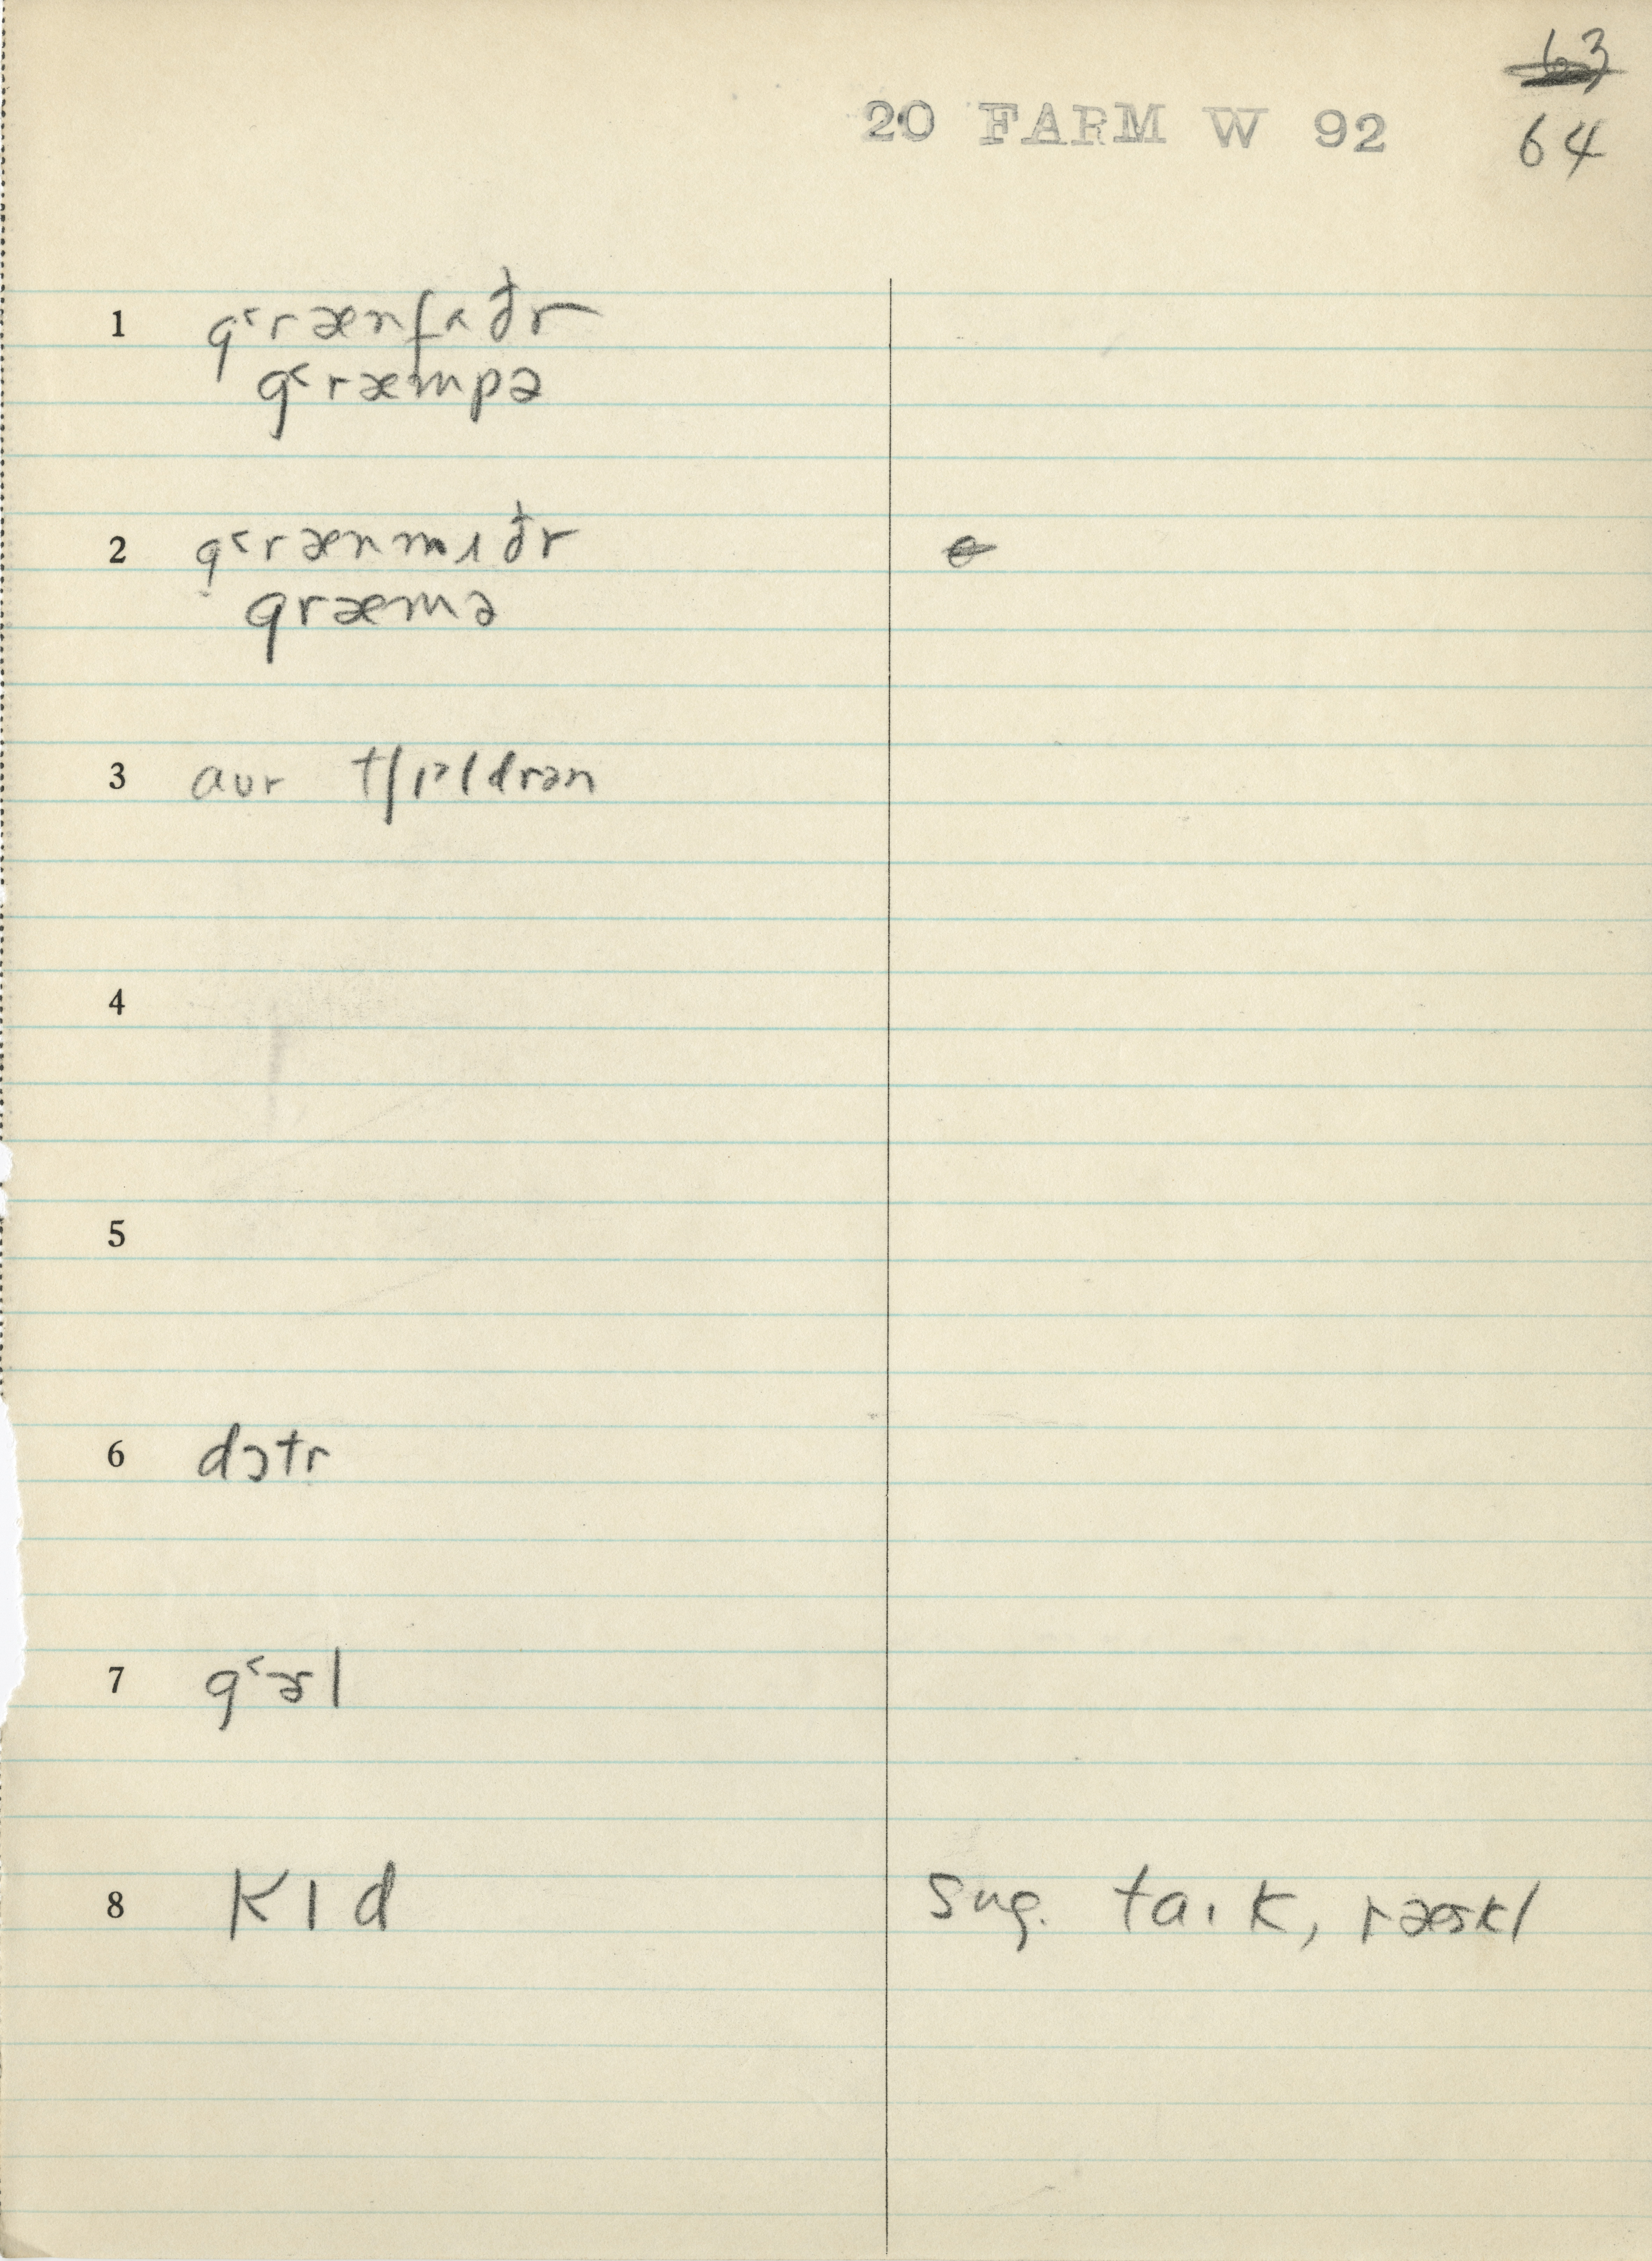 63
20 FARM W 92
64
1 g˂rænfɑðr
g˂ræmpə
2 g˂rænmʌðr
græmə
3 aʊr tʃɪᵊldrən
4
5
6 dɔtr
7 g˂ɚl
8 kɪd
sug. ta.ɪk, ræskl